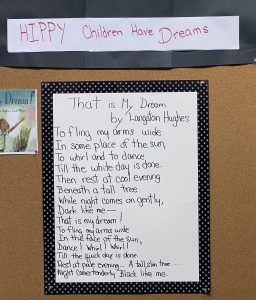 HIPPY Children Have Dreams
Dream!
That is My Dream
by Langston Hughes
To fling my arms wide
In some place of the sun,
To whirl and to dance
Till the white day is done.
Then rest at cool evening
Beneath a tall tree
While night comes on gently,
Dark like me—
That is my dream!
To fling my arms wide
In the face of the sun,
Dance! Whirl! Whirl!
Till the quick day is done.
Rest at pale evening... A tall, slim tree....
Night comes tenderly Black like me.